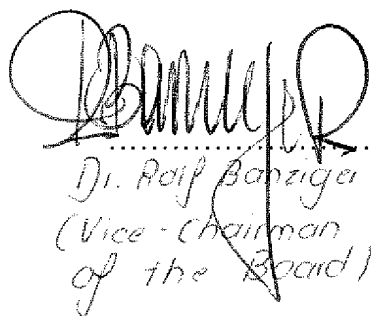 Dr. Rolf Bänziger
(Vice-Chairman
of the Board)